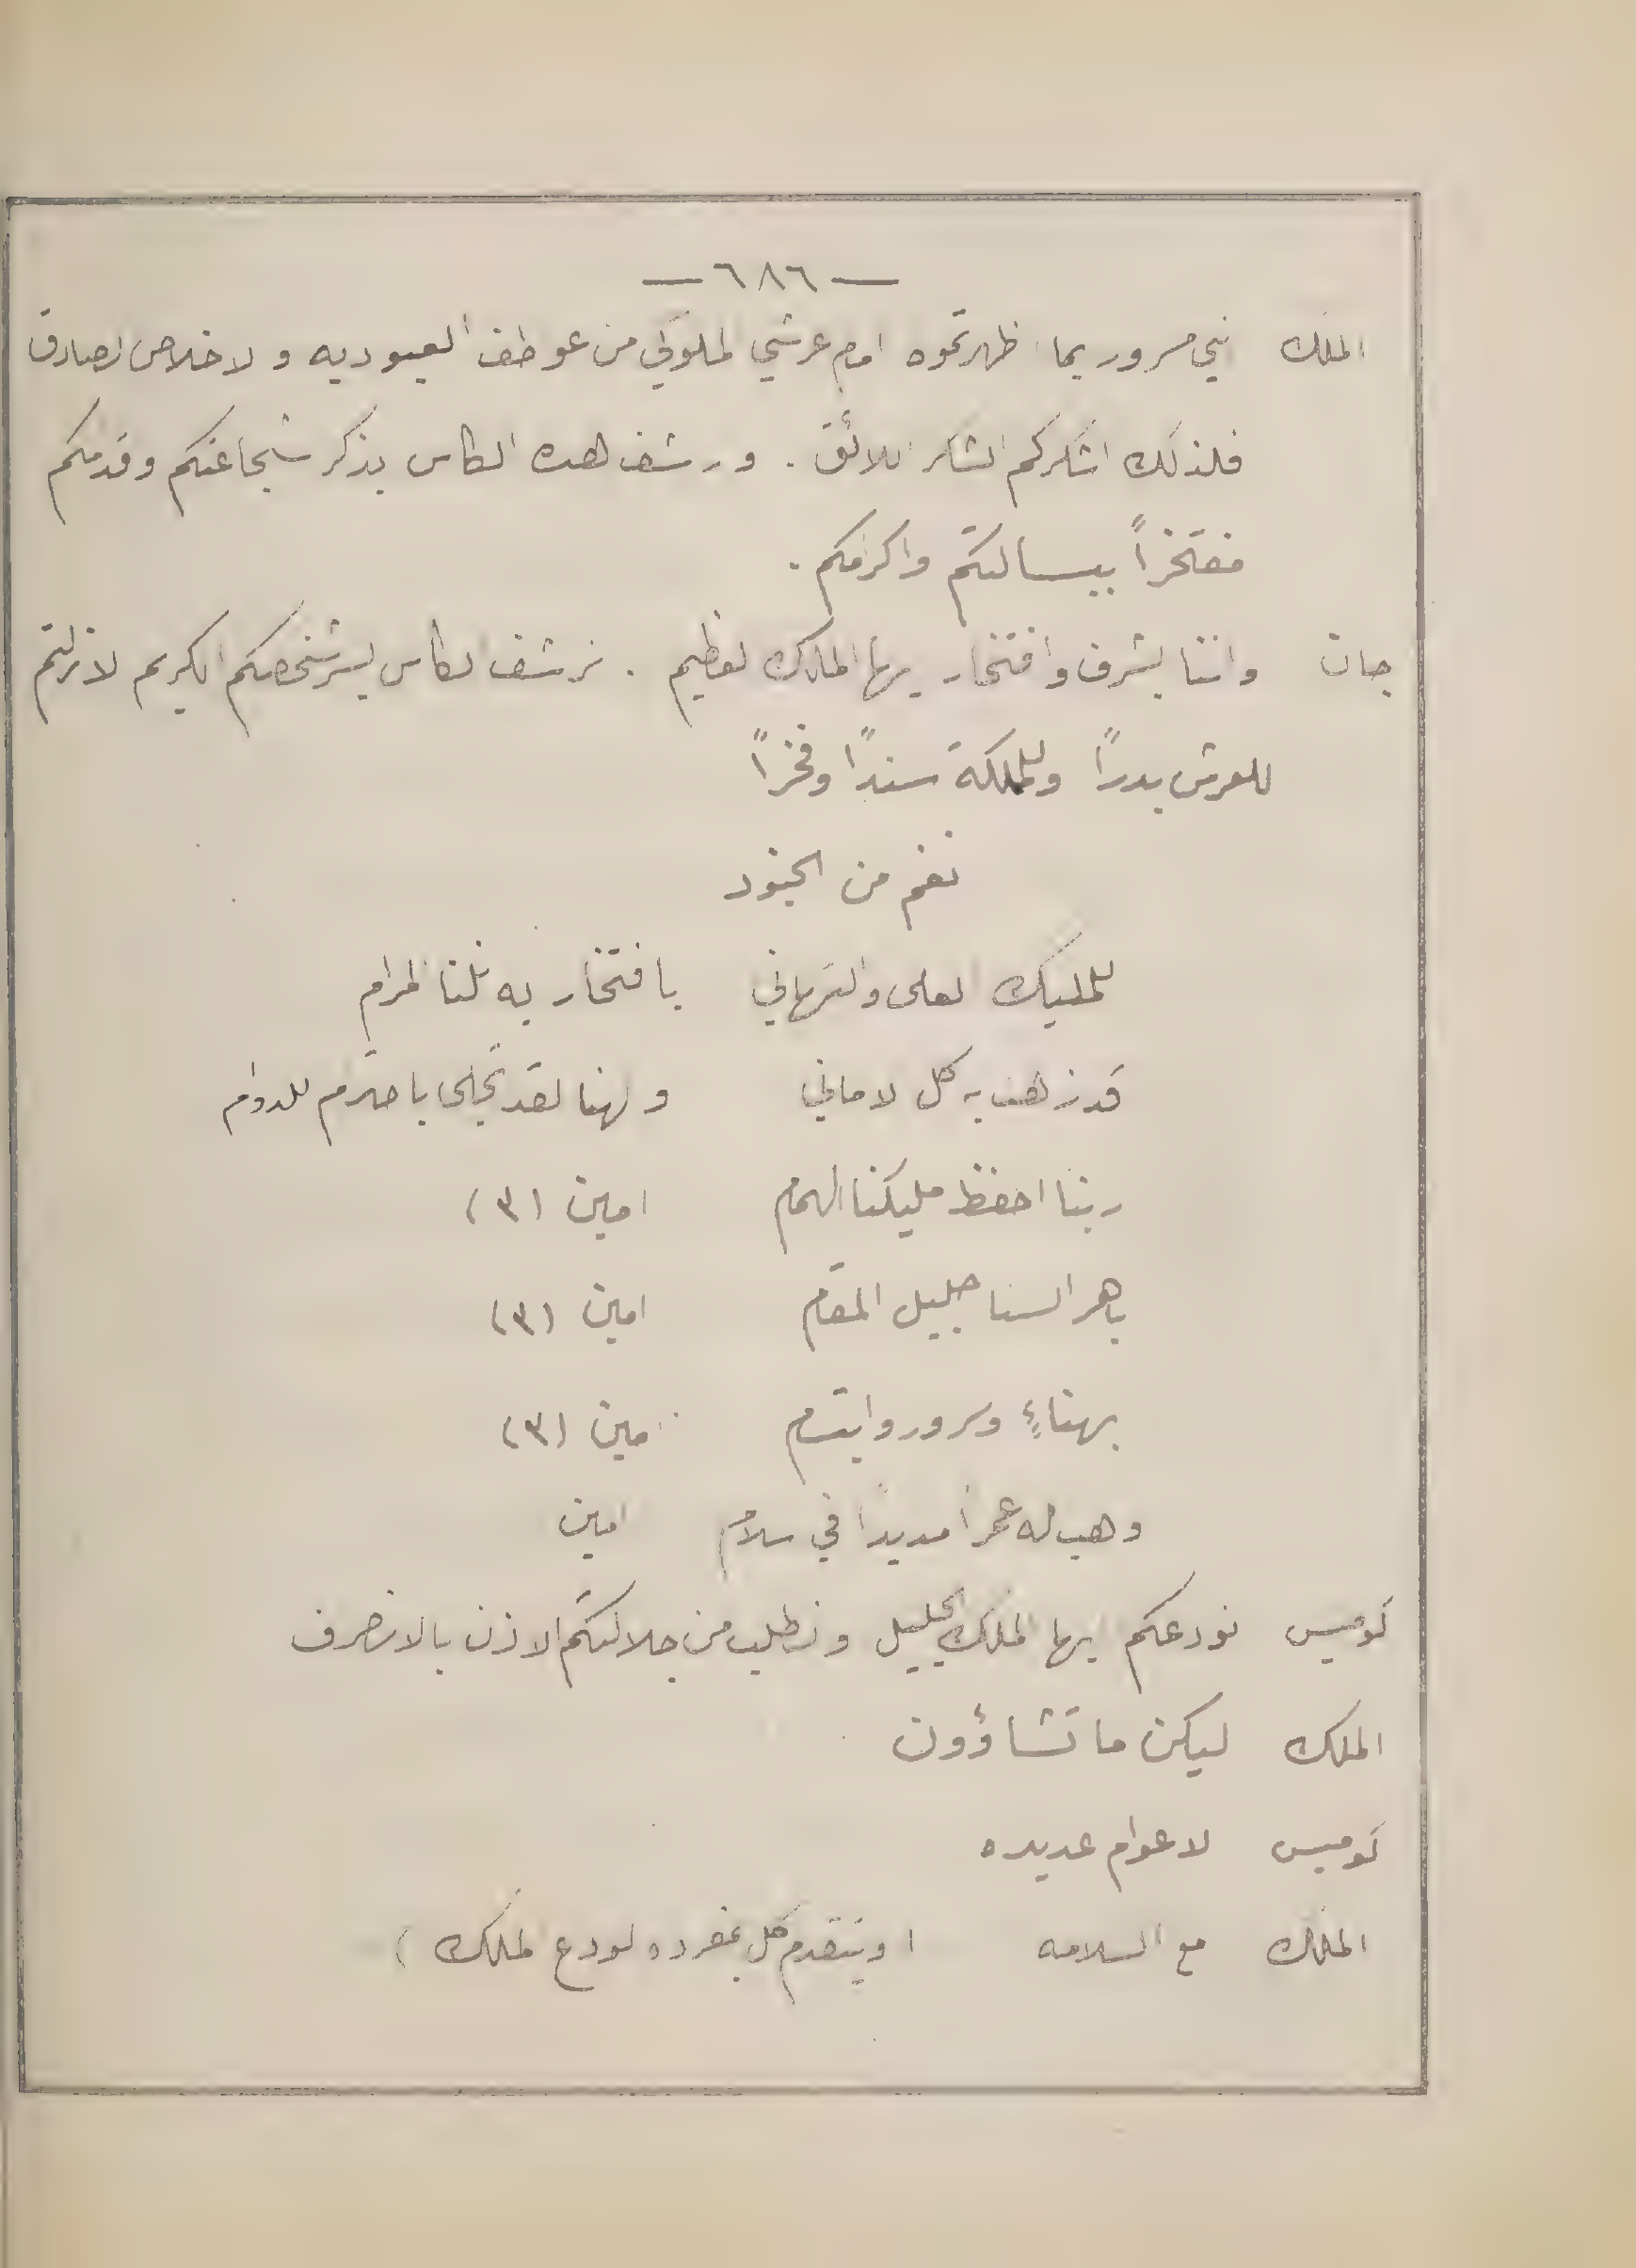 — ٦٨٦ —
الملك انني مسرور بما اظهرتموه امام عرشي الملوكي من عواطف العبوديه والاخلاص الصادق
فلذلك اشكركم الشكر اللائق . وارشف هذه الكاس بذكر شجاعتكم وقدمكم
مفتخراً ببسالتكم واكرامكم .
جان واننا بشرف وافتخار ايها الملك العظيم . نرشف الكاس بسر شخصكم الكريم لازلتم
للعرش بدراً وللمملكة سنداً وفخراً
نغم من الجنود
للمليك العلى والتهاني بافتخار به نلنا المرام
قد زهت به كل الاماني والهنا لقد تجلى باحترام للدوام
ربنا احفظ مليكنا الهمام امين (٣)
باهر السنا جليل المقام امين (٣)
بهناءٍ وسرور وابتسام امين (٣)
وهب له عمراً مديداً في سلام امين
كوميس نودعكم ايها الملك الجليل ونطلب من جلالتكم الاذن بالانصراف
الملك ليكن ما تشاؤون
كوميس لاعوام عديده
الملك مع السلامه (ويتقدم كل بمفرده لوداع الملك)